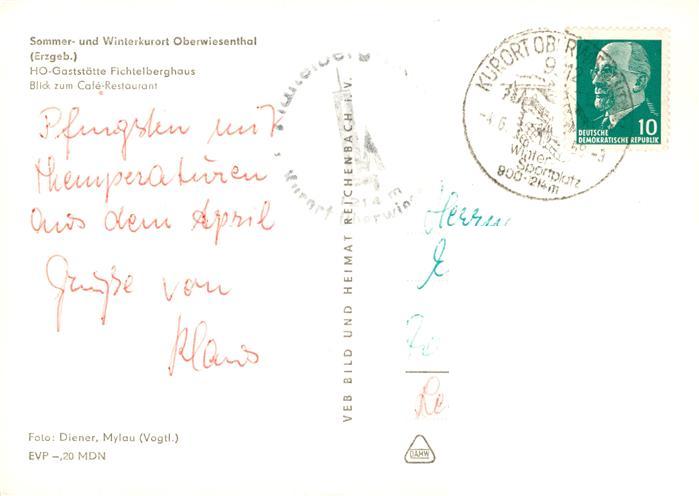 Sommer- und Winterkurort Oberwiesenthal
(Erzgeb.)
HO-Gaststätte Fichtelberghaus
Blick zum Café-Restaurant
Pfingsten mit
themperatüren
aus dem April
Grüße von
Klaus
Foto: Diener, Mylau (Vogtl.)
EVP -,20 MDN
VEB BILD UND HEIMAT REICHENBACH i. V.
Kurort
KURORT OBERW
Winter
Sportplatz
900-1214 m
10
DEUTSCHE
DEMOKRATISCHE REPUBLIK
Herrn
DAMW